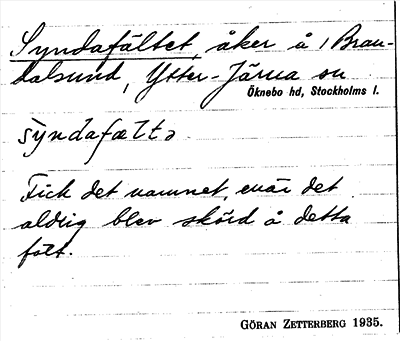 Syndafältet, åker å, Bran-
dalsund, Ytter-Järna sn
Öknebo hd, Stockholms l.
syndafæltə
Fick det namnet, enär det
aldrig blev skörd å detta
fält.
GÖRAN ZETTERBERG 1935.